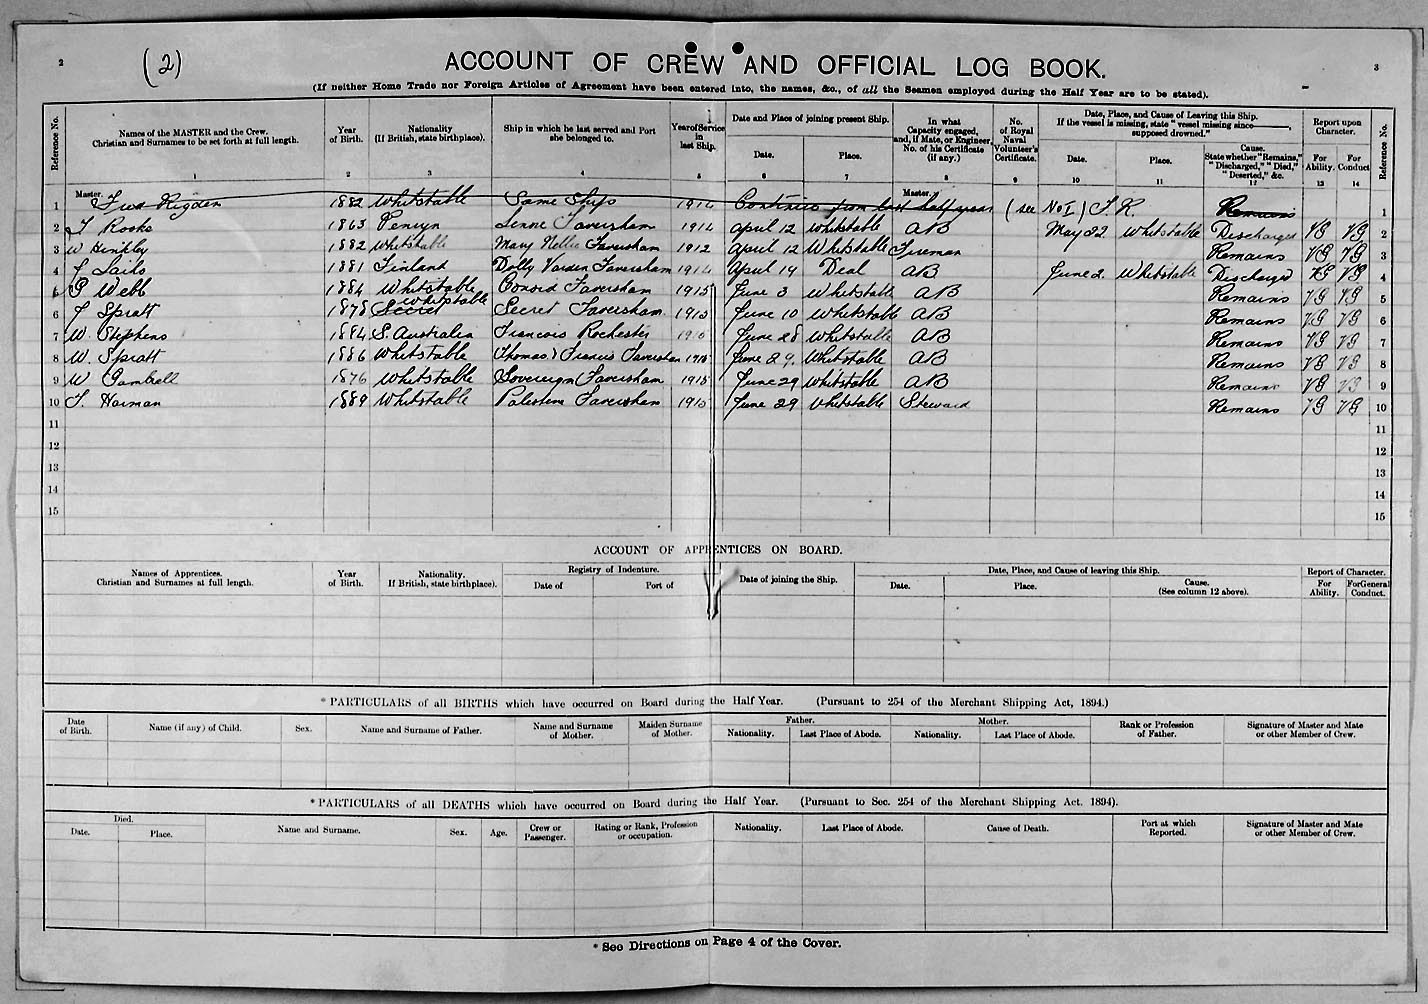 2
(2)
ACCOUNT OF CREW AND OFFICIAL LOG BOOK.
3
(If neither Home Trade nor Foreign Articles of Agreement have been entered into, the names, &c., of all the Seamen employed during the Half Year are to be stated).
Reference No.
Names of the MASTER and the Crew. Christian and Surnames to be set forth at full length.
Year of Birth.
Nationality (If British, state birthplace).
Ship in which he last served and Port she belonged to.
Year of Service in last Ship.
Date and Place of joining present Ship.
Date.
Place.
In what Capacity engaged, and, if Mate, or Engineer, No. of his Certificate (if any.)
No. of Royal Naval Volunteer's Certificate.
Date, Place, and Cause of Leaving this Ship.
If the vessel is missing, state "vessel missing since ———, supposed drowned."
Date.
Place.
Cause. State whether "Remains," "Discharged," "Died," "Deserted," &c.
Report upon Character.
For Ability.
For Conduct
Reference No.
1 2 3 4 5 6 7 8 9 10 11 12 13 14
1 Master. Fred Rigden 1882 Whitstable Same Ship 1914 Continues from last half year Master. (see No I) F. R. Remains 1
2 J Rooks 1863 Penryn Lenore Faversham 1914 April 12 Whitstable AB May 22 Whitstable Discharged VG VG 2
3 W Hinkley 1882 Whitstable Mary Nellie Faversham 1912 April 12 Whitstable Fireman Remains VG VG 3
4 Sails 1881 Finland Dolly Varden Faversham 1914 April 14 Deal AB June 2 Whitstable Discharged VG VG 4
5 G Webb 1884 Whitstable Concord Faversham 1915 June 3 Whitstable AB Remains VG VG 5
6 J Spratt 1878 Secret Whitstable Secret Faversham 1915 June 10 Whitstable AB Remains VG VG 6
7 W. Stephens 1884 S. Australia Francois Rochester 1915 June 28 Whitstable AB Remains VG VG 7
8 W. Spratt 1886 Whitstable Thomas & Francis Faversham 1915 June 29. Whitstable AB Remains VG VG 8
9 W Gambell 1876 Whitstable Sovereign Faversham 1915 June 29 Whitstable AB Remains VG VG 9
10 Harman 1889 Whitstable Palestine Faversham 1915 June 29 Whitstable Steward Remains VG VG 10
11 11
12 12
13 13
14 14
15 15
ACCOUNT OF APPRENTICES ON BOARD.
Names of Apprentices. Christian and Surnames at full length.
Year of Birth.
Nationality. If British, state birthplace).
Registry of Indenture.
Date of
Port of
Date of joining the Ship.
Date, Place, and Cause of leaving this Ship.
Date.
Place.
Cause. (See column 12 above).
Report of Character.
For Ability.
For General Conduct.
* PARTICULARS of all BIRTHS which have occurred on Board during the Half Year. (Pursuant to 254 of the Merchant Shipping Act, 1894.)
Date of Birth.
Name (if any) of Child.
Sex.
Name and Surname of Father.
Name and Surname of Mother.
Maiden Surname of Mother.
Father.
Nationality.
Last Place of Abode.
Mother.
Nationality.
Last Place of Abode.
Rank or Profession of Father.
Signature of Master and Mate or other Member of Crew.
* PARTICULARS of all DEATHS which have occurred on Board during the Half Year. (Pursuant to Sec. 254 of the Merchant Shipping Act. 1894).
Died.
Date.
Place.
Name and Surname.
Sex.
Age.
Crew or Passenger.
Rating or Rank, Profession or occupation.
Nationality.
Last Place of Abode.
Cause of Death.
Port at which Reported.
Signature of Master and Mate or other Member of Crew.
* See Directions on Page 4 of the Cover.